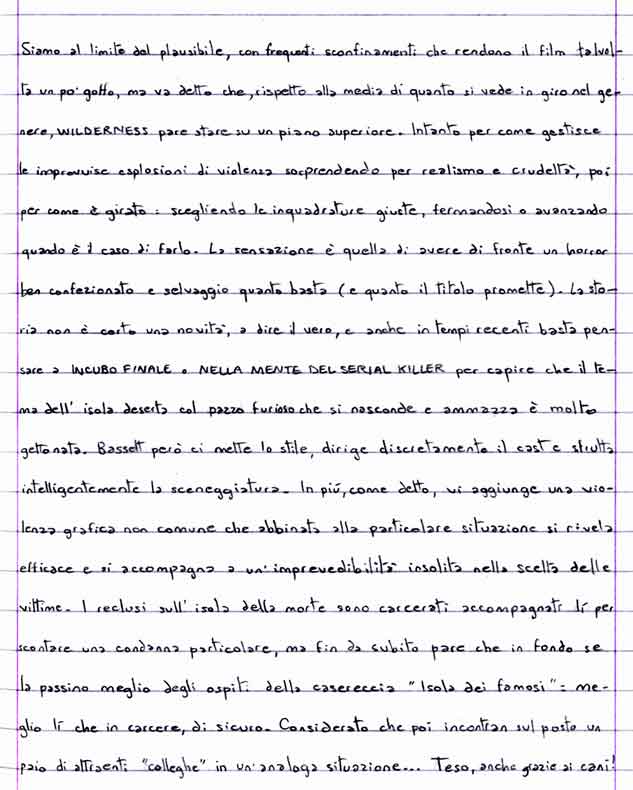 Siamo al limite del plausibile, con frequenti sconfinamenti che rendono il film talvol-
ta un po' goffo, ma va detto che, rispetto alla media di quanto si vede in giro nel ge-
nere, WILDERNESS pare stare su un piano superiore. Intanto per come gestisce
le improvvise esplosioni di violenza sorprendendo per realismo e crudeltà, poi
per come è girato: scegliendo le inquadrature giuste, fermandosi o avanzando
quando è il caso di farlo. La sensazione è quella di avere di fronte un horror
ben confezionato e selvaggio quanto basta (e quanto il titolo promette). La sto-
ria non è certo una novità, a dire il vero, e anche in tempi recenti basta pen-
sare a INCUBO FINALE o NELLA MENTE DEL SERIAL KILLER per capire che il te-
ma dell'isola deserta col pazzo furioso che si nasconde e ammazza è molto
gettonata. Bassett però ci mette lo stile, dirige discretamente il cast e sfrutta
intelligentemente la sceneggiatura. In più, come detto, vi aggiunge una vio-
lenza grafica non comune che abbinata alla particolare situazione si rivela
efficace e si accompagna a un'imprevedibilità insolita nella scelta delle
vittime. I reclusi sull'isola della morte sono carcerati accompagnati lì per
scontare una condanna particolare, ma fin da subito pare che in fondo se
la passino meglio degli ospiti della casereccia "Isola dei famosi": me-
glio lì che in carcere, di sicuro. Considerato che poi incontran sul posto un
paio di attraenti "colleghe" in un'analoga situazione... Teso, anche grazie ai cani!